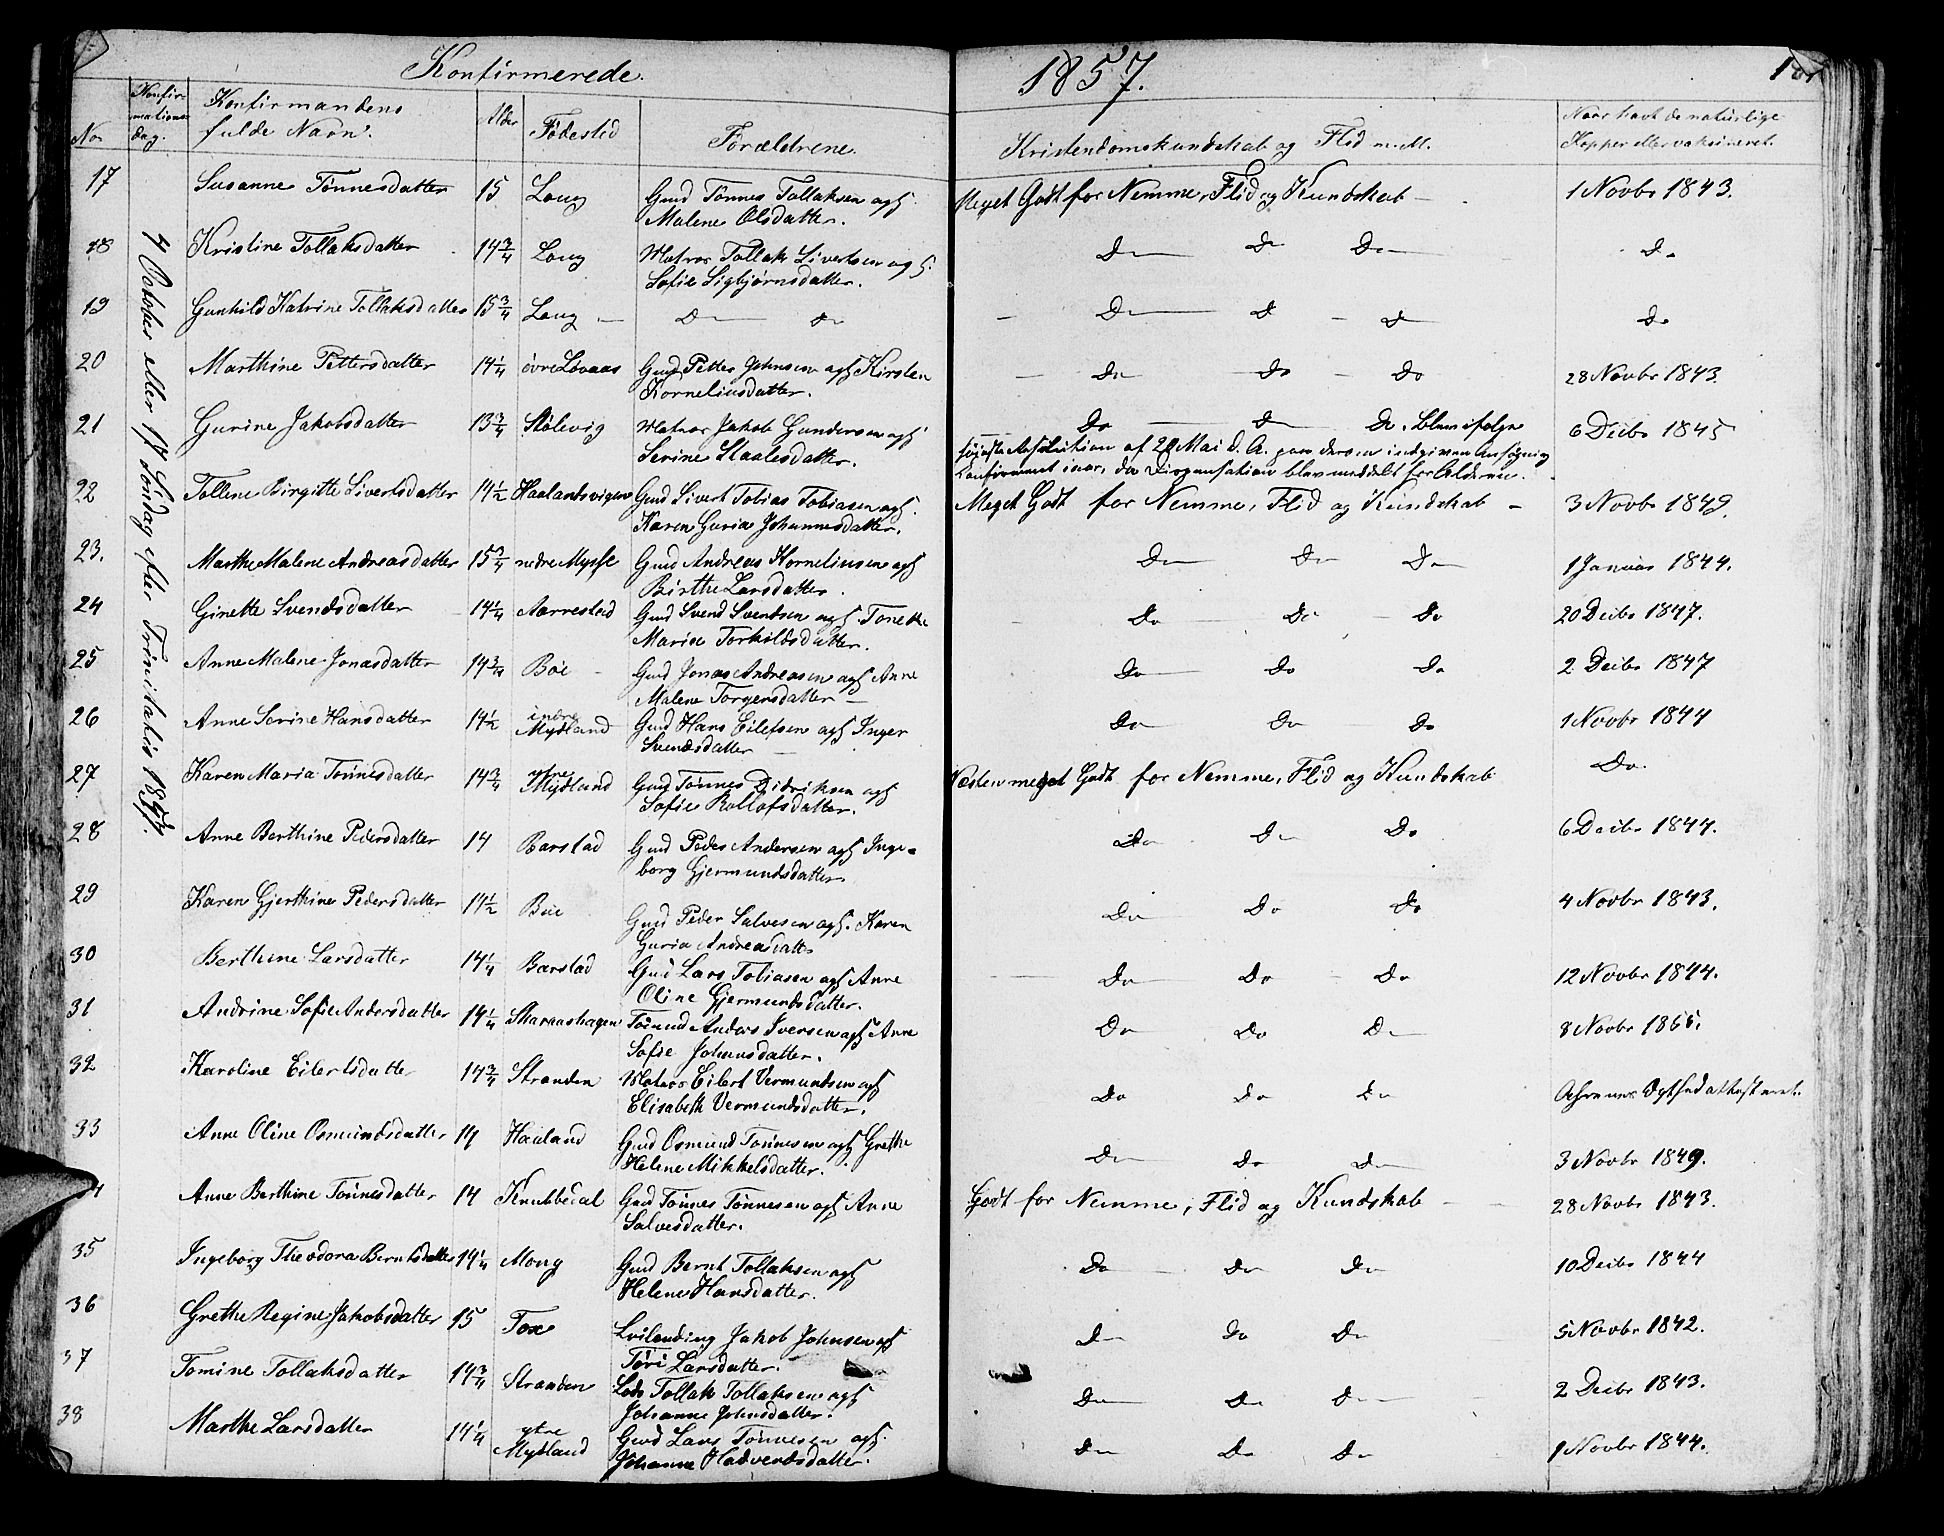 Konfirmerede. 1857. 101
No Konfir-
mations-
dag. Konfirmandens
fulde Navn. Alder Fødested Forældrene. Kristendomskundskab og Flid m. M. Naar havt de naturlige
Kopper eller vaksineret.
4 October eller 17 Søndag efter Trinitatis 1857.
17 Susanne Tønnesdatter 15 Loug Gmd Tønnes Tollaksen og H. Meget Godt for Nemme, Flid og Kundskab — 1 Novbr 1843.
Malene Olsdatter.
18 Kristine Tollaksdatter 14 3/4 Loug Matros Tollak Sivertsen og H. Do — Do Do — Do
Sofie Sigbjørnsdatter.
19 Gunhild Katrine Tollaksdatter 15 3/4 Loug — Do — Do — Do — Do — Do Do
20 Marthine Pettersdatter 14 1/4 øvre Lovaas Gmd Petter Johnsen og H Kirsten — Do — Do — Do 28 Novbr 1843.
Korneliusdatter.
21 Gurine Jakobsdatter 13 3/4 Skølevig Matros Jakob Gundersen og H Do — Do Do, blev ifølge 6 Decbr 1845
Serine Staalesdatter. Resolution af 20 Mai d. A. paa derom indgiven Ansøgning
konfirmeret iaar, da Dispensation blev meddelt for Alderen.
22 Tollene Birgitte Sivertsdatter 14 1/2 Haalandsvigen Gmd Sivert Tobias Tobiasen og H. Meget Godt for Nemme, Flid og Kundskab — 3 Novbr 1849.
Karen Guria Johannesdatter.
23. Marthe Malene Andreasdatter 15 3/4 nedre Mysse Gmd Andreas Korneliusen og H Do — Do Do 1 Januar 1844.
Birthe Larsdatter.
24 Ginette Svendsdatter 14 1/4 Aarrestad Gmd Svend Svendsen og H. Tonette Do Do — Do 20 Decbr 1847.
Maria Torkildsdatter.
25 Anne Malene Jonasdatter 14 3/4 Bøe — Gmd Jonas Andreasen og H Anne Do — Do Do 2 Decbr 1847
Malene Torgersdatter —
26 Anne Serine Hansdatter 14 1/2 indre
Mydland Gmd Hans Eilefsen og H Inger Do — Do Do 1 Novbr 1844
Svendsdatter —
27 Karen Maria Tønnesdatter 14 3/4 ytre
Mydland Gmd Tønnes Didriksen og H Næsten meget Godt for Nemme, Flid og Kundskab Do.
Sofie Rollofsdatter.
28 Anne Berthine Pedersdatter 14 Barstad Gmd Peder Andersen og H Inge- Do Do Do 6 Decbr 1844.
borg Gjermundsdatter
29 Karen Gjerthine Pedersdatter 14 1/2 Bøe Gmd Peder Salvesen og H. Karen Do Do Do 4 Novbr 1843.
Guria Andreasdatter
30 Berthine Larsdatter 14 1/4 Barstad Gmd Lars Tobiasen og H Anne Do Do — Do 12 Novbr 1844.
Oline Gjermundsdatter.
31 Andrine Sofie Andersdatter 14 1/4 Skaraashagen Anders Iversen og H Anne Do Do Do 8 Novbr
Sofie Johnsdatter.
32 Karoline Eilertsdatter 14 3/4 Stranden Matros Eilert Vermundsen og H Do Do Do
Elisabeth Vermundsdatter.
33 Anne Oline Osmundsdatter 14 Haaland Gmd Osmund Tønnesen og H Grethe Do — Do Do 3 Novbr 1849.
Helene Mikkelsdatter.
Anne Berthine Tønnesdatter 14 Knubbedal Gmd Tønnes Tønnesen og H Anne Godt for Nemme, Flid og Kundskab — 28 Novbr 1843.
Salvesdatter.
35 Ingeborg Theodora Berntsdatter 14 1/4 Mong Gmd Bernt Tollaksen og H Do — Do Do 10 Decbr 1844
Helene Hansdatter.
36 Grethe Regine Jakobsdatter 15 Foxe Jakob Johnsen og H Do Do Do 5 Novbr 1842.
Tøri Larsdatter.
37 Tomine Tollaksdatter 14 3/4 Stranden Lods Tollak Tollaksen og H Do — Do Do 2 Decbr 1843.
Johanne Johnsdatter.
38 Marthe Larsdatter 14 1/4 ytre
Mydland Gmd Lars Tønnesen og H. Do Do Do 1 Novbr 1844.
Johanne Hadvardsdatter.